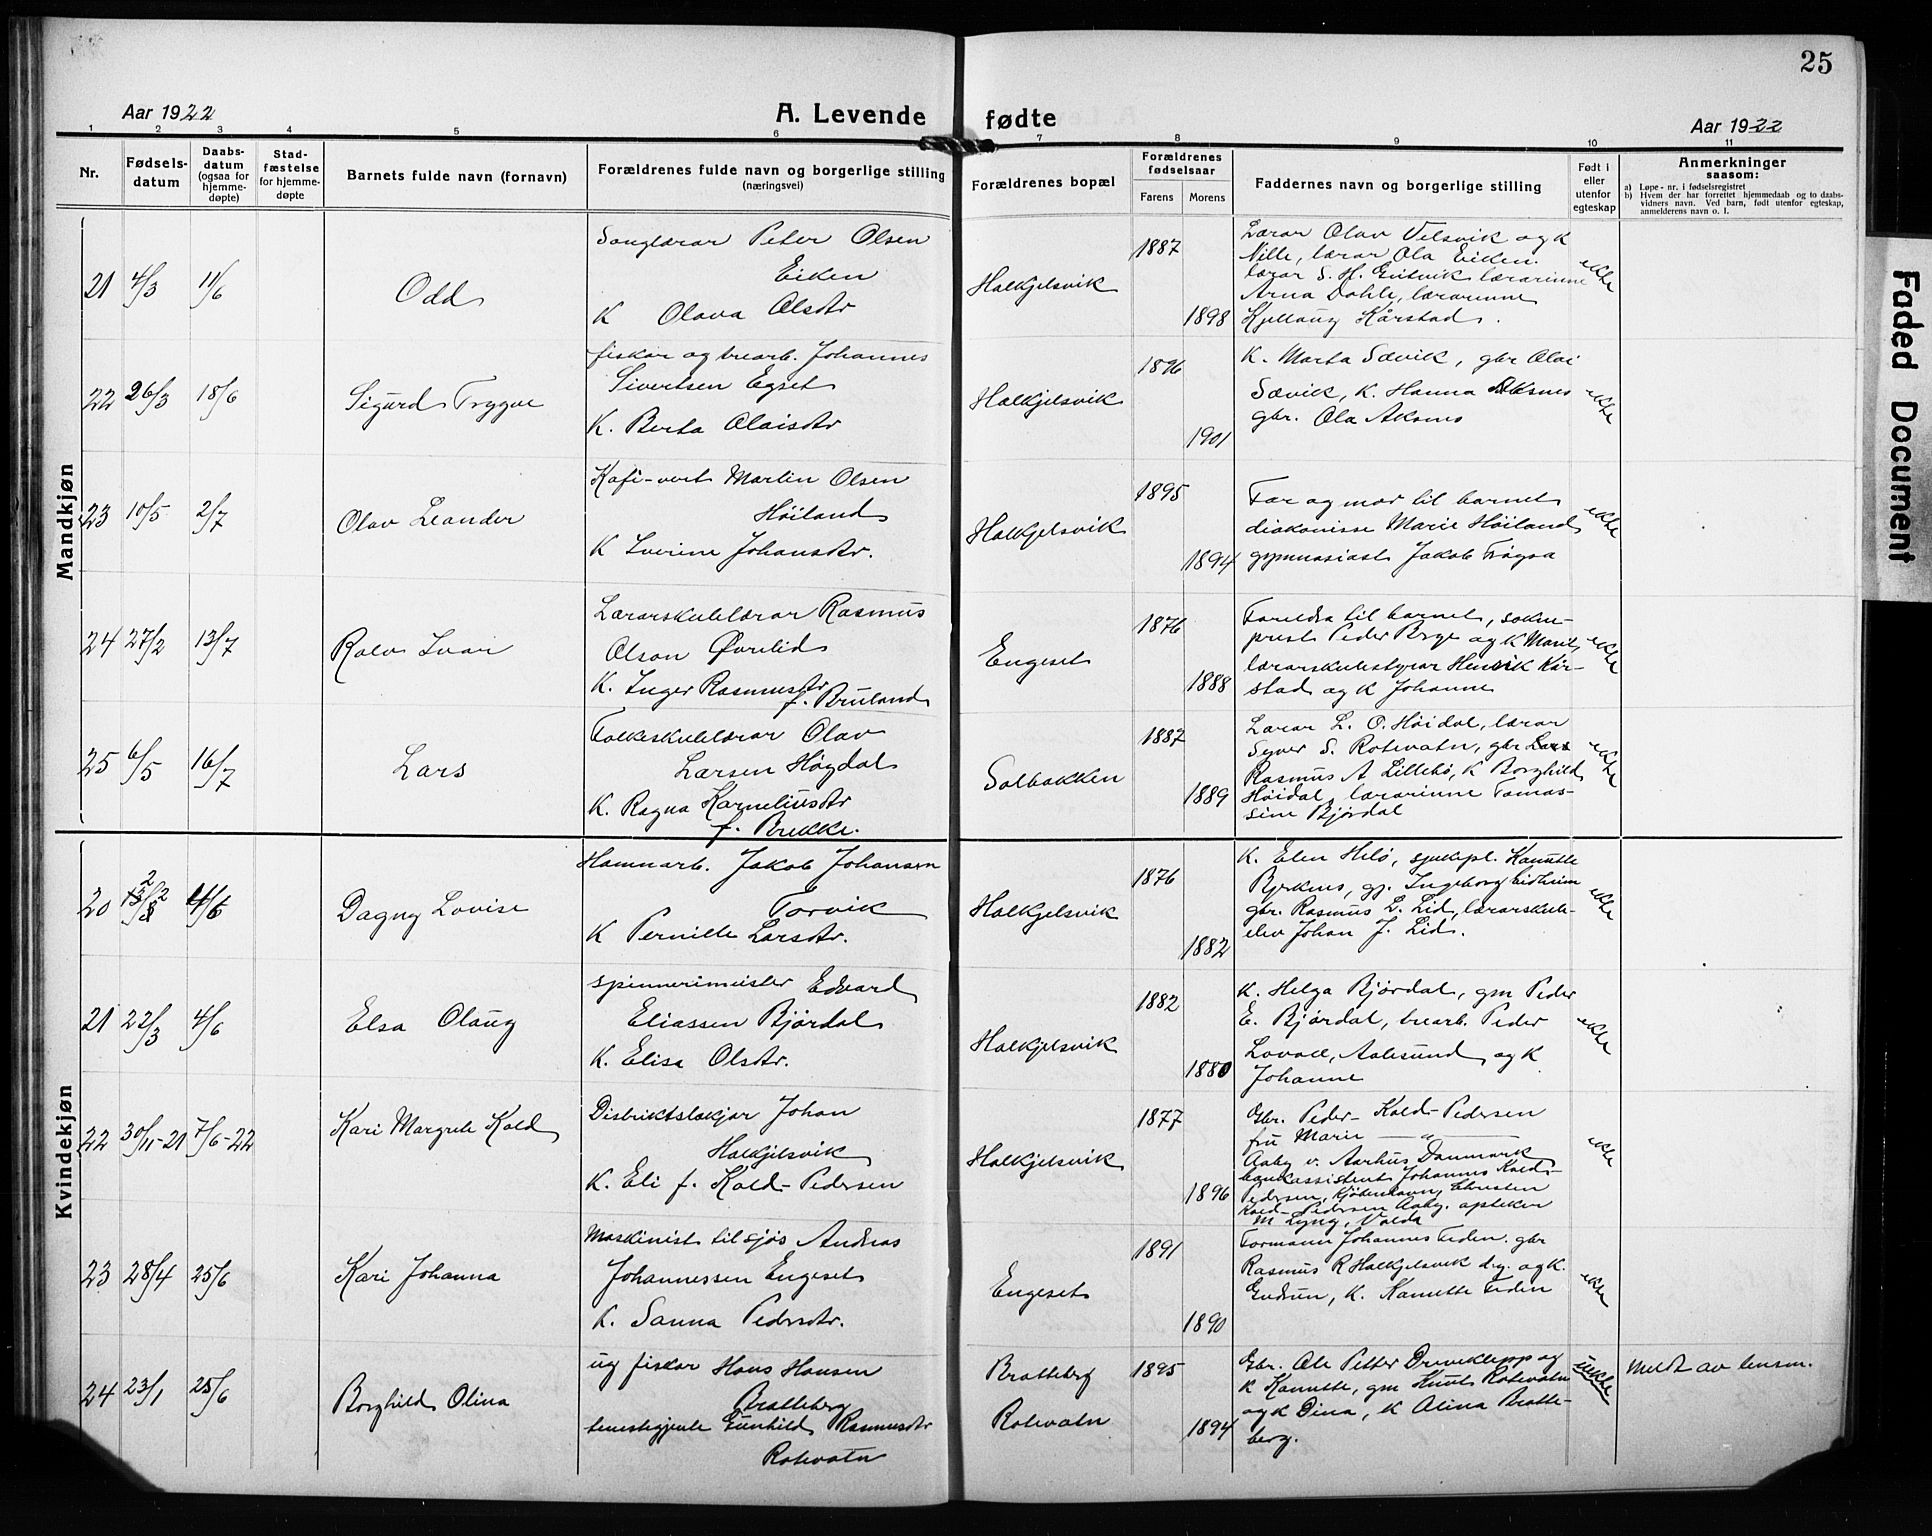 25
Aar 1922
A. Levende fødte
Aar 1922
1 2 3 4 5 6 7 8 9 10 11
Nr.
Fødsels-
datum
Daabs-
datum
(ogsaa for
hjemme-
døpte)
Stad-
fæstelse
for hjemme-
døpte
Barnets fulde navn (fornavn)
Forældrenes fulde navn og borgerlige stilling
(næringsvei)
Forældrenes bopæl
Forældrenes
fødselsaar
Farens Morens
Faddernes navn og borgerlige stilling
Født i
eller
utenfor
egteskap
Anmerkninger
saasom:
a) Løpe-nr. i fødselsregistret
b) Hvem der har forrettet hjemmedaab og to daabs-
vidners navn. Ved barn, født utenfor egteskap,
anmelderens navn o. l.
Mandkjøn
21 4/3 11/6
Odd
Songlærar Peter Olsen
Eiken
K Olava Olsdtr
Halkjelsvik
1887
1898
Lærar Olav Velsvik og k
Nille, lærar Ola Eiken.
lærar S. H. lærarinne
Arna Dahle, lærarinne
Kjellaug Kårstad.
ekte
22 26/3 18/6
Sigurd Tryggve
fiskar og trearb. Johannes
Sivertsen Egset
K. Berta Olaisdtr
Halkjelsvik
1896
1901
K. Marta Sævik, gbr Olai
Sævik, K. Hanna Aksnes
gbr. Ola Aksnes
ekte
23 10/5 2/7
Olav Leander
Kafi-vert Martin Olsen
Höiland
K Iverine Johansdtr.
Halkjelsvik
1895
1894
Far og mor til barnet
diakonisse Marie Höiland
gymnasiast Jakob
ekte
24 27/2 13/7
Rolv Ivar
Lærarskulelærar Rasmus
Olson Øvrelid
K. Inger Rasmusdtr
f. Bruland
Engeset
1876
1888
Foreldra til barnet, sokne-
prest Peder Berge og K Marit,
lærarskulestyrar Henrik Kår-
stad og K Johanne
ekte
25 6/5 16/7
Lars
Folkeskulelærar Olav
Larsen Høydal
K. Ragna Korneliusdtr
f. Brekke.
Solbakken
1887
1889
Lærar L. O. Höidal, lærar
Syver S. Rotevatn, gbr Lars
Rasmus A Lillebö, K Borghild
Höidal, lærarinne Tomas-
sine Bjørdal
ekte
Kvindekjøn
20 4/6
Dagny Lovise
Hamnarb. Jakob Johansen
Torvik
K Pernille Larsdtr.
Halkjelsvik
1876
1882
K. Elen Helö, sjukepl. Kanutte
Bjerknes, gj. Ingeborg Eidheim
gbr. Rasmus L. Lid, lærarskule-
elev Johan J. Lid.
ekte
21 22/3 4/6
Elsa Olaug
Spinnerimeister Edvard
Eliassen Bjørdal
K. Elisa Olsdtr.
Halkjelsvik
1882
1880
K. Helga Bjørdal, gm Peder
E. Bjørdal, trearb. Peder
Lovoll, Aalesund og K
Johanne
ekte
22 30/11-21 7/6-22
Kari Margrete Kold
Distriktslækjar Johan
Halkjelsvik
K. Eli f. Kold-Pedersen
Halkjelsvik
1877
1896
Gbr. Peder Kold-Pedersen
fru Marie — " —
Aaby v. Aarhus Danmark
bankassistent Johannes Kold-
Pedersen, Kjöbenhavn, Christen
Kold-Pedersen Aaby, apoteker
M Lyng, Volda
ekte
23 28/4 25/6
Kari Johanna
Maskinist til sjøs Andreas
Johannessen Engeset
K. Sanna Pedersdtr.
Engeset
1891
1890
Formann Johannes Eiden. gbr
Rasmus R Halkjelsvik d.y. og K.
Gudrun, K. Kanutte Eiden
ekte
24 23/1 25/6
Borghild Olina
ug fiskar Hans Hansen
Bratteberg
tenestegjente Gunhild Rasmusdtr
Rotevatn
Bratteberg
Rotevatn
1895
1894
Gbr. Ole Petter Driveklepp og
K Kanutte, gm Knut Rotevatn
og K Dina, K Olina Bratte-
berg.
uekte
Meldt av lensm.
Faded Document